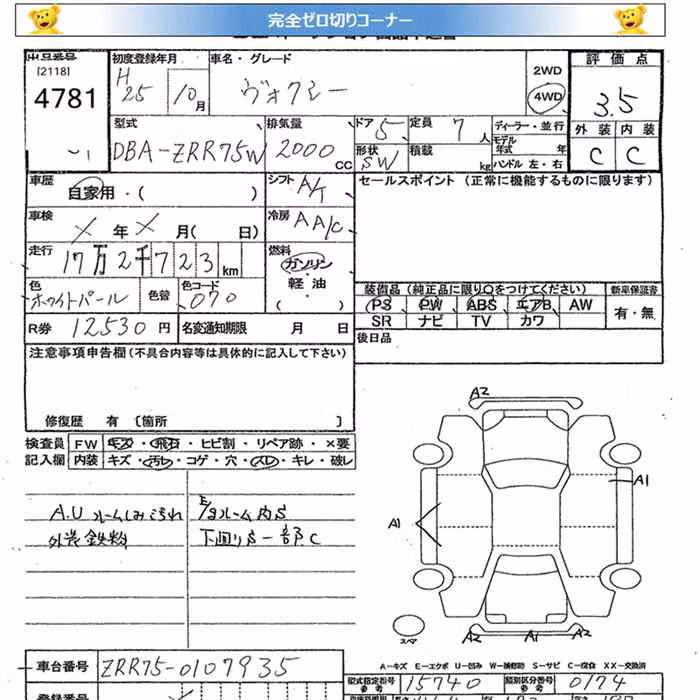 完全ゼロ切りコーナー
出品番号 初度登録年月 車名・グレード 評価点
[2118] H 25 / 10月 ヴォクシー 2WD 4WD 3.5
4781
型式 排気量 ドア 5 定員 7人 ディーラー・並行 外装 内装
DBA-ZRR75W 2000cc 形状 SW 積載 kg モデル年式 年 ハンドル 左・右 C C
車歴 自家用・( ) シフト A/T セールスポイント (正常に機能するものに限ります)
車検 X 年 X 月( 日) 冷房 AA/C
走行 17万2千723km 燃料 ガソリン・軽油 ( )
色 ホワイトパール 色替 色コード 070 装備品 (純正品に限り○をつけてください) 新車保証書
PS PW ABS エアB AW 有・無
SR ナビ TV カワ
R券 12530円 名変通知期限 月 日 後日品
注意事項申告欄 (不具合内容等は具体的に記入して下さい)
修復歴 有 〔箇所 〕
検査員 FW キズ・飛石・ヒビ割・リペア跡・×要
記入欄 内装 キズ・汚レ・コゲ・穴・スレ・キレ・破レ
A.U ルームしみよごれ
外装鉄粉
E/gルーム内S
下回りS一部C
A2
A1
A1
スペア
A2 A1 A2
A-キズ E-エクボ U-凹み W-補修跡 S-サビ C-腐食 XX-交換済
車台番号 ZRR75-0107935
型式指定番号 参考 15740 類別区分番号 参考 0174
登録番号